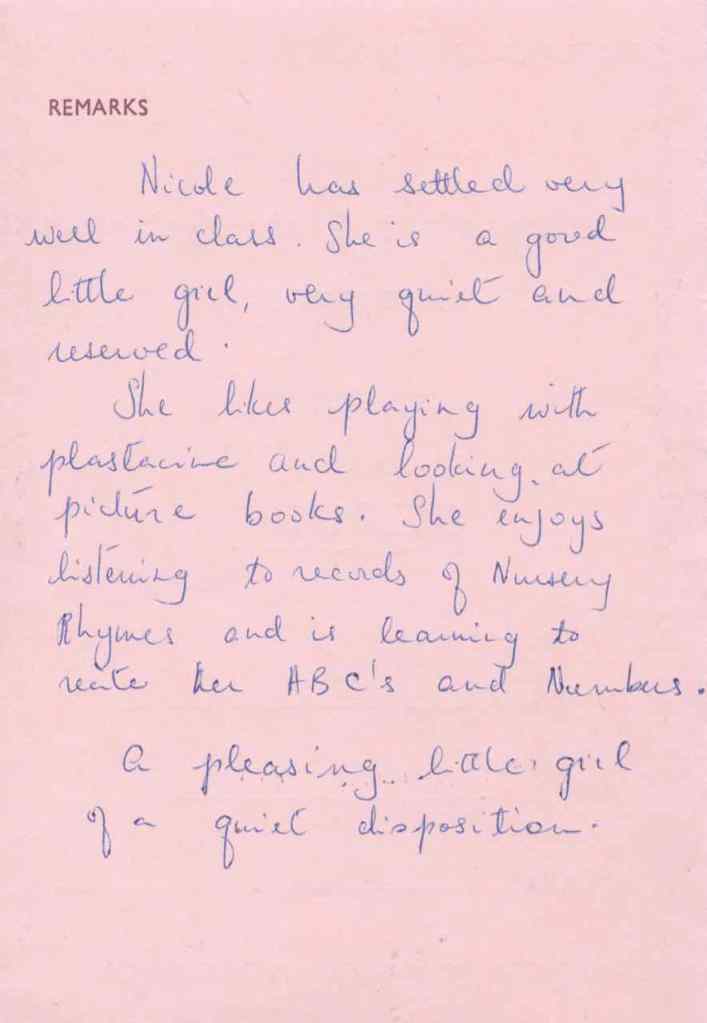 REMARKS
Nicole has settled very
well in class. She is a good
little girl, very quiet and
reserved.
She likes playing with
plastacine and looking at
picture books. She enjoys
listening to records of Nursery
Rhymes and is learning to
recite her ABC's and Numbers.
A pleasing little girl
of a quiet disposition.